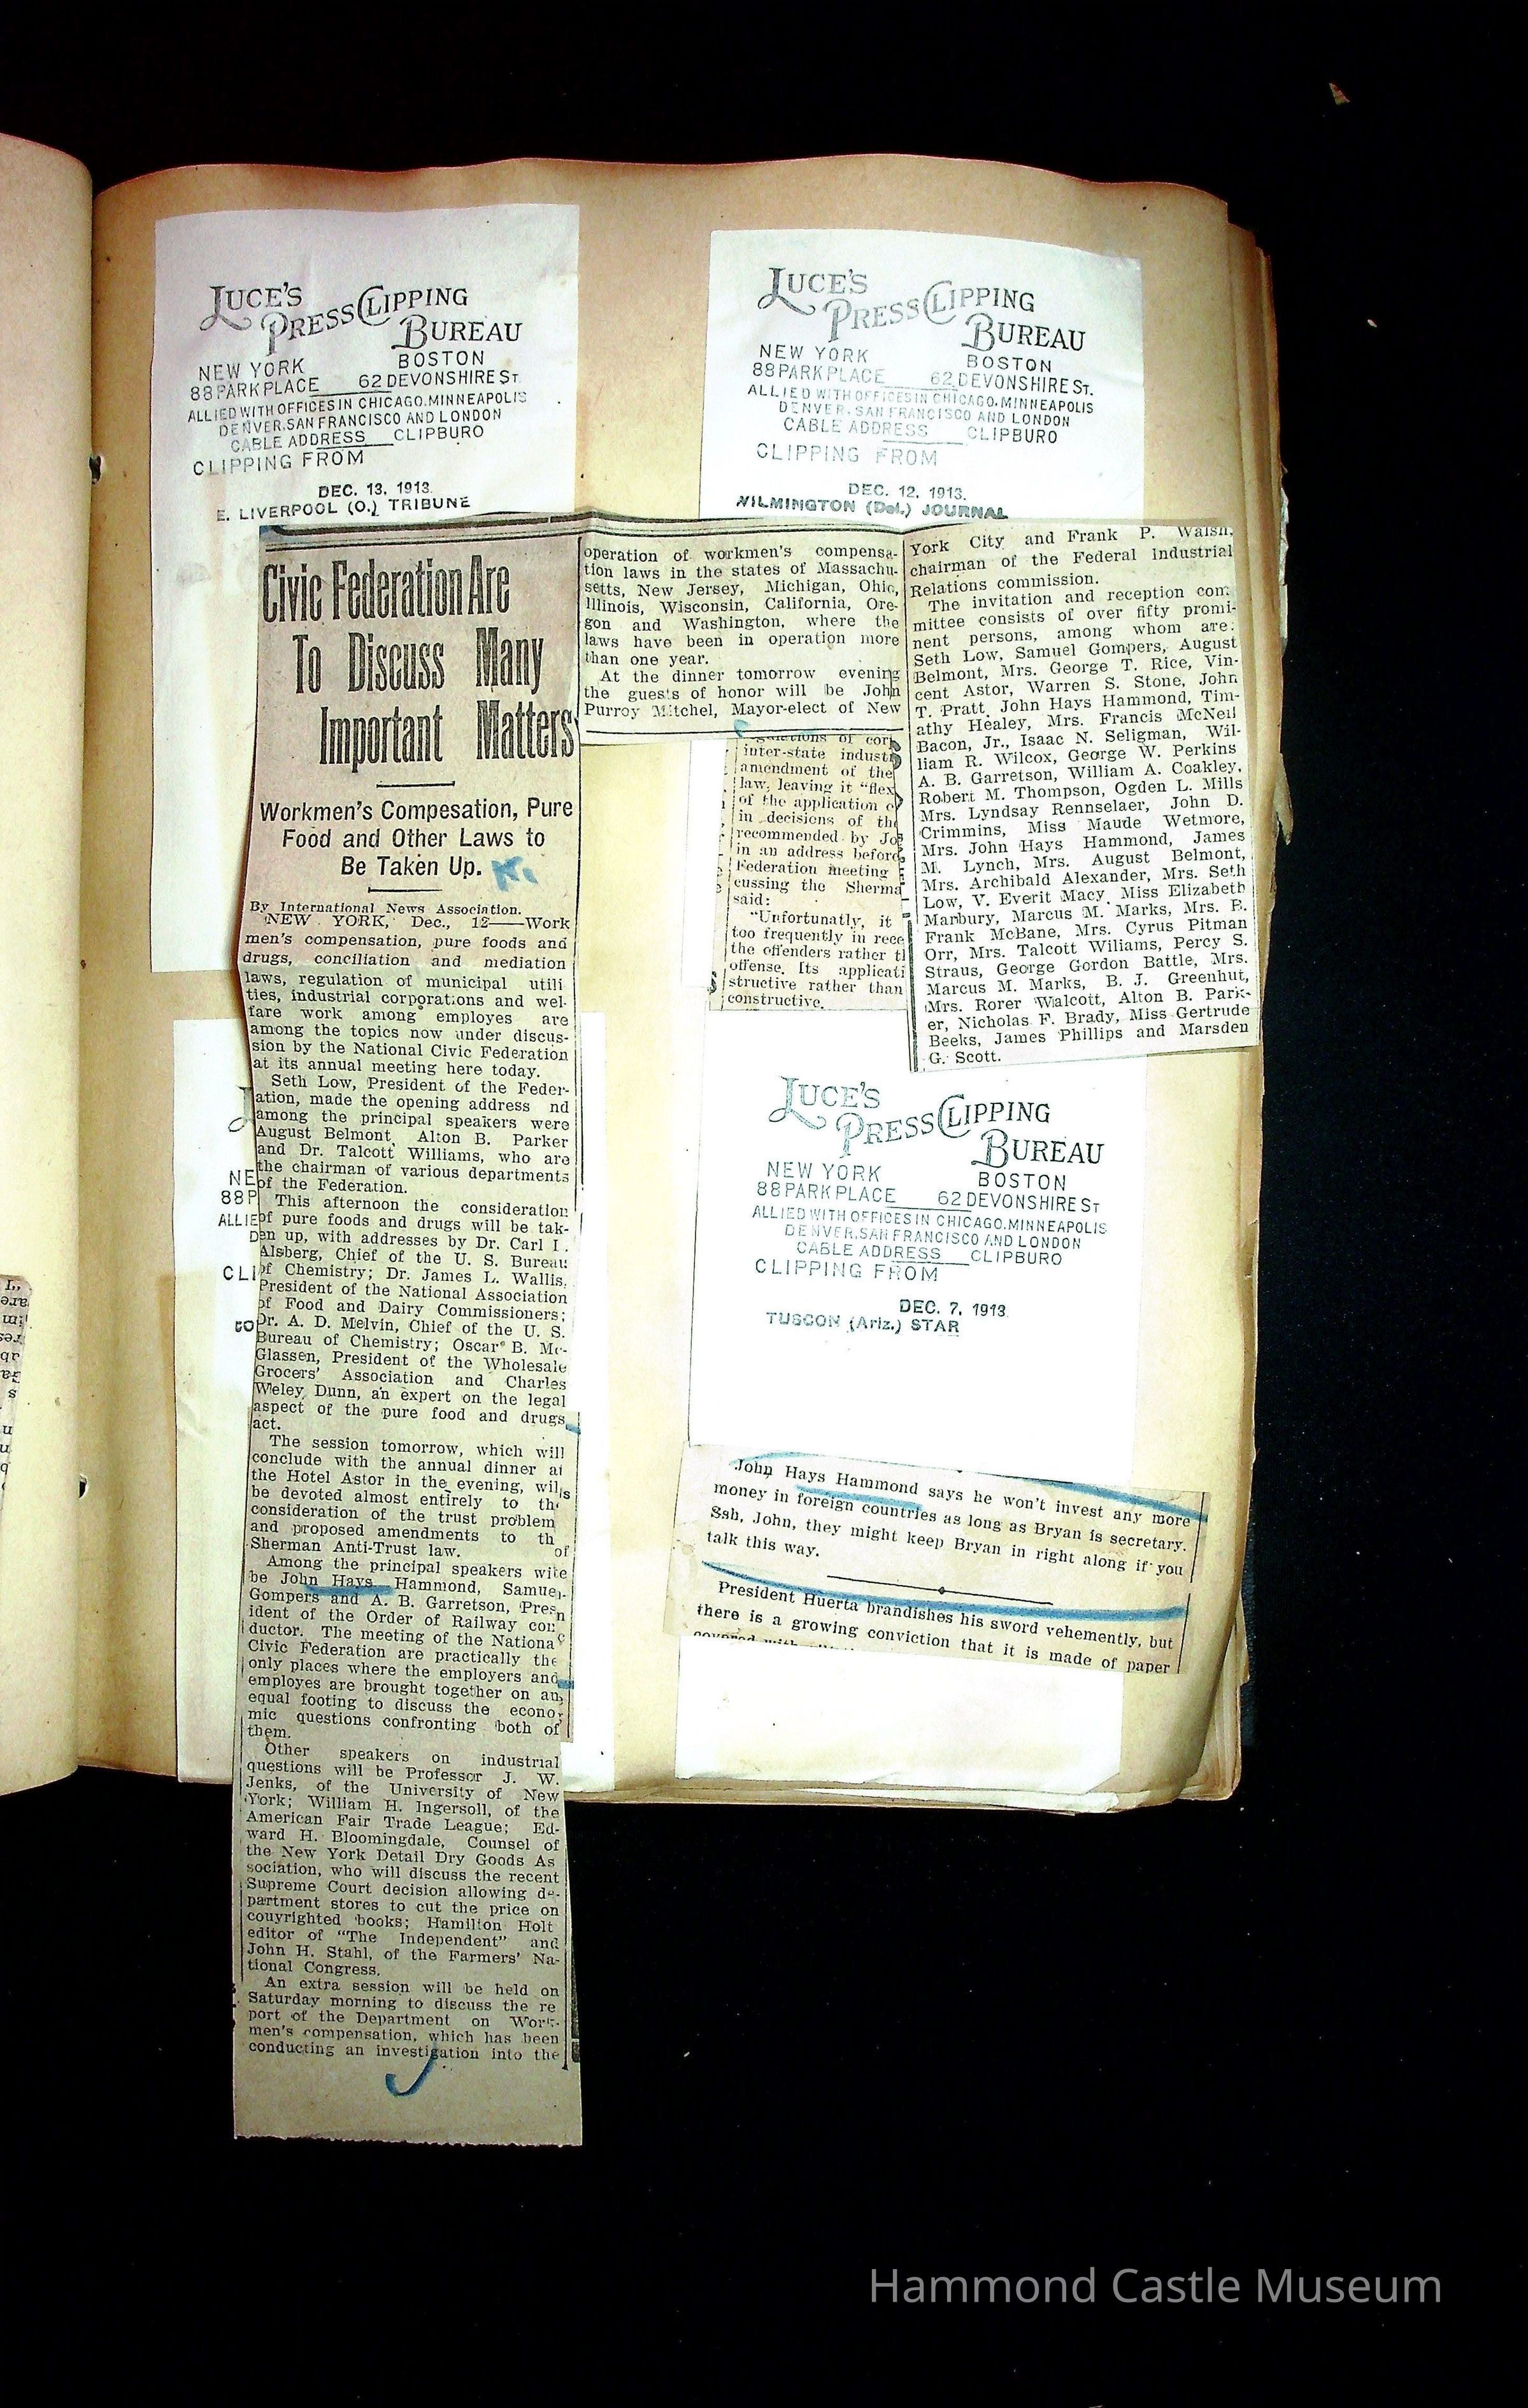 LUCE'S
PRESS CLIPPING
BUREAU
NEW YORK BOSTON
88 PARK PLACE 62 DEVONSHIRE ST.
ALLIED WITH OFFICES IN CHICAGO. MINNEAPOLIS
DENVER. SAN FRANCISCO AND LONDON
CABLE ADDRESS CLIPBURO
CLIPPING FROM
DEC. 13, 1913.
E. LIVERPOOL (O.) TRIBUNE
Civic Federation Are
To Discuss Many
Important Matters
Workmen's Compesation, Pure
Food and Other Laws to
Be Taken Up.
By International News Association.
NEW YORK, Dec., 12——Work
men's compensation, pure foods and
drugs, conciliation and mediation
laws, regulation of municipal utili
ties, industrial corporations and wel-
fare work among employes are
among the topics now under discus-
sion by the National Civic Federation
at its annual meeting here today.
Seth Low, President of the Feder-
ation, made the opening address nd
among the principal speakers were
August Belmont, Alton B. Parker
and Dr. Talcott Williams, who are
the chairman of various departments
of the Federation.
This afternoon the consideration
of pure foods and drugs will be tak-
en up, with addresses by Dr. Carl I.
Alsberg, Chief of the U. S. Bureau
of Chemistry; Dr. James L. Wallis,
President of the National Association
of Food and Dairy Commissioners;
Dr. A. D. Melvin, Chief of the U. S.
Bureau of Chemistry; Oscar B. Mc-
Glassen, President of the Wholesale
Grocers' Association and Charles
Weley Dunn, an expert on the legal
aspect of the pure food and drugs
act.
The session tomorrow, which will
conclude with the annual dinner at
the Hotel Astor in the evening, will
be devoted almost entirely to th
consideration of the trust problem
and proposed amendments to th
Sherman Anti-Trust law. of
Among the principal speakers wite
be John Hays Hammond, Samuel
Gompers and A. B. Garretson, Pres
ident of the Order of Railway con
ductor. The meeting of the Nationa
Civic Federation are practically the
only places where the employers and
employes are brought together on an
equal footing to discuss the econo
mic questions confronting both of
them.
Other speakers on industrial
questions will be Professor J. W.
Jenks, of the University of New
York; William H. Ingersoll, of the
American Fair Trade League; Ed-
ward H. Bloomingdale, Counsel of
the New York Detail Dry Goods As
sociation, who will discuss the recent
Supreme Court decision allowing de-
partment stores to cut the price on
couyrighted books; Hamilton Holt
editor of "The Independent" and
John H. Stahl, of the Farmers' Na-
tional Congress.
An extra session will be held on
Saturday morning to discuss the re
port of the Department on Work-
men's compensation, which has been
conducting an investigation into the
operation of workmen's compensa-
tion laws in the states of Massachu-
setts, New Jersey, Michigan, Ohio,
Illinois, Wisconsin, California, Ore-
gon and Washington, where the
laws have been in operation more
than one year.
At the dinner tomorrow evening
the guests of honor will be John
Purroy Mitchel, Mayor-elect of New
York City and Frank P. Walsh,
chairman of the Federal Industrial
Relations commission.
The invitation and reception com
mittee consists of over fifty promi-
nent persons, among whom are:
Seth Low, Samuel Gompers, August
Belmont, Mrs. George T. Rice, Vin-
cent Astor, Warren S. Stone, John
T. Pratt, John Hays Hammond, Tim-
athy Healey, Mrs. Francis McNeil
Bacon, Jr., Isaac N. Seligman, Wil-
liam R. Wilcox, George W. Perkins
A. B. Garretson, William A. Coakley,
Robert M. Thompson, Ogden L. Mills
Mrs. Lyndsay Rennselaer, John D.
Crimmins, Miss Maude Wetmore,
Mrs. John Hays Hammond, James
M. Lynch, Mrs. August Belmont,
Mrs. Archibald Alexander, Mrs. Seth
Low, V. Everit Macy, Miss Elizabeth
Marbury, Marcus M. Marks, Mrs. B.
Frank McBane, Mrs. Cyrus Pitman
Orr, Mrs. Talcott Wiliams, Percy S.
Straus, George Gordon Battle, Mrs.
Marcus M. Marks, B. J. Greenhut,
Mrs. Rorer Walcott, Alton B. Park-
er, Nicholas F. Brady, Miss Gertrude
Beeks, James Phillips and Marsden
G. Scott.
LUCE'S
PRESS CLIPPING
BUREAU
NEW YORK BOSTON
88 PARK PLACE 62 DEVONSHIRE ST.
ALLIED WITH OFFICES IN CHICAGO. MINNEAPOLIS
DENVER. SAN FRANCISCO AND LONDON
CABLE ADDRESS CLIPBURO
CLIPPING FROM
DEC. 12, 1913.
WILMINGTON (Del.) JOURNAL
inter-state indust
amendment of the
law, leaving it "flex
of the application o
in decisions of the
recommended by Jo
in an address before
Federation meeting
cussing the Sherma
said:
"Unfortunatly, it
too frequently in rece
the offenders rather t
offense. Its applicati
structive rather than
constructive.
NE
88 P
ALLIE
D
CLI
CO
LUCE'S
PRESS CLIPPING
BUREAU
NEW YORK BOSTON
88 PARK PLACE 62 DEVONSHIRE ST
ALLIED WITH OFFICES IN CHICAGO. MINNEAPOLIS
DENVER. SAN FRANCISCO AND LONDON
CABLE ADDRESS CLIPBURO
CLIPPING FROM
DEC. 7, 1913
TUSCON (Ariz.) STAR
John Hays Hammond says he won't invest any more
money in foreign countries as long as Bryan is secretary.
Ssh, John, they might keep Bryan in right along if you
talk this way.
President Huerta brandishes his sword vehemently, but
there is a growing conviction that it is made of paper
covered with
Hammond Castle Museum